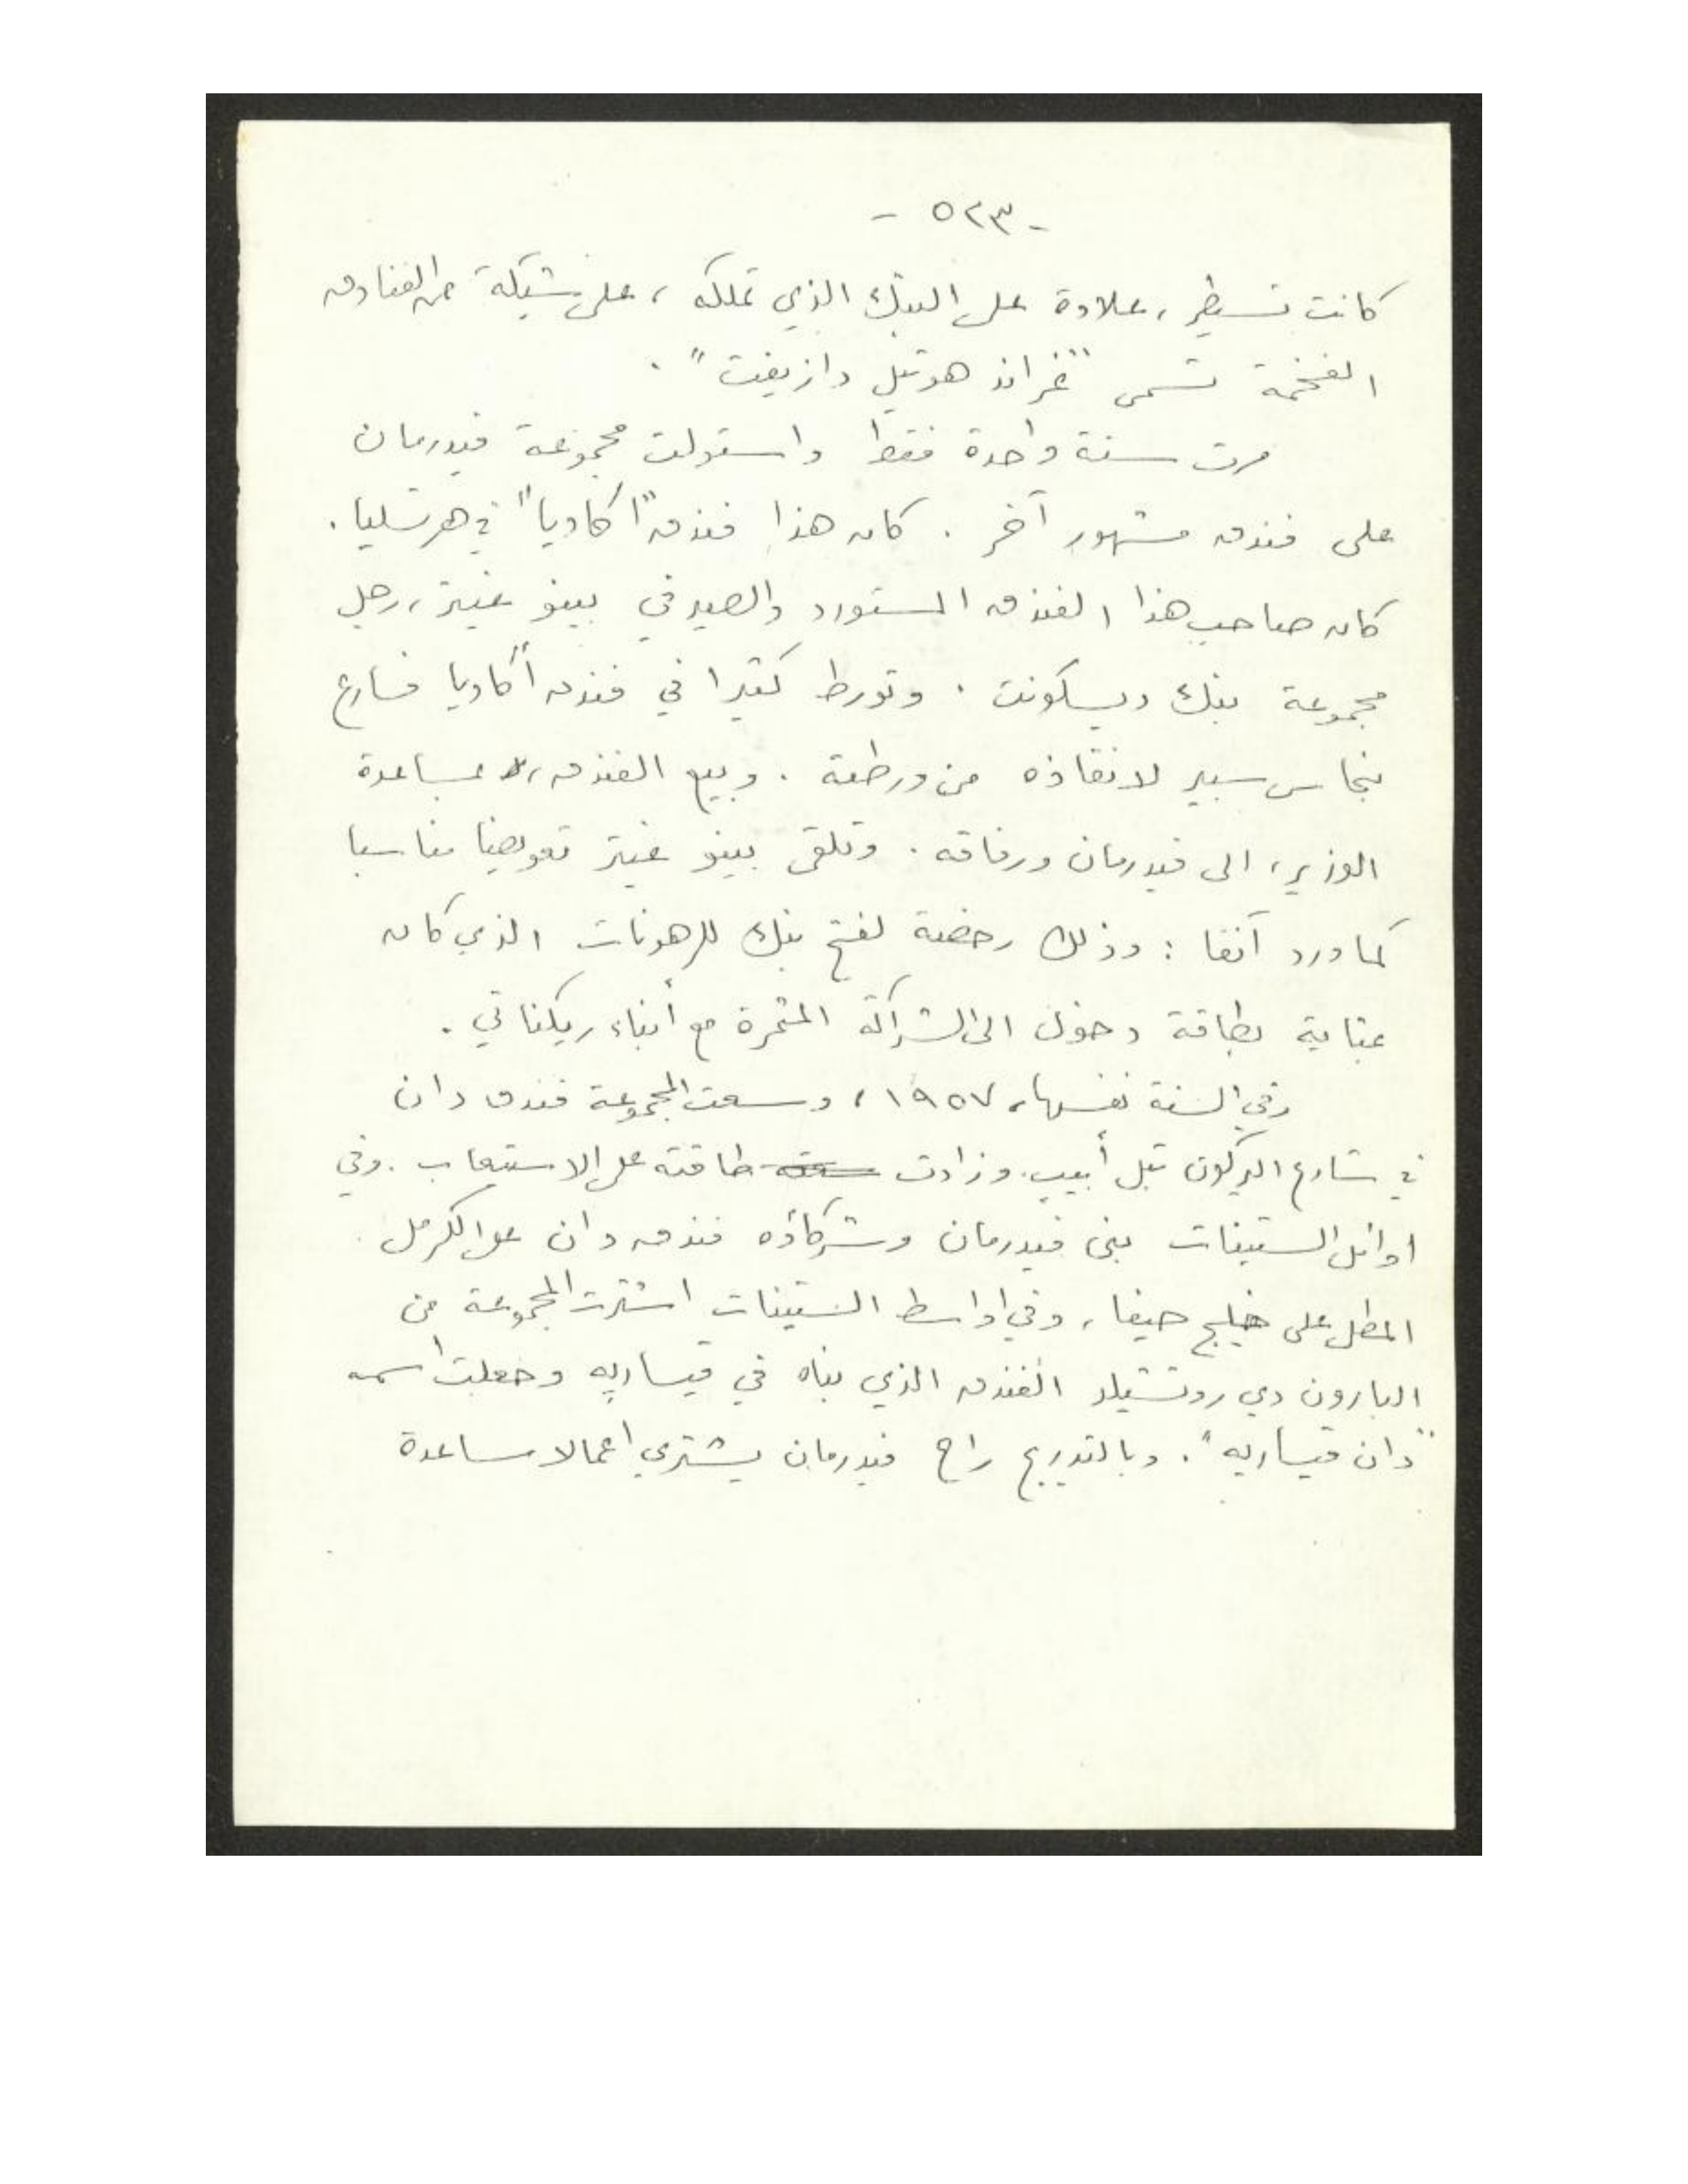 - ٥٢٣ -
كانت تسيطر، علاوة على البنك الذي تملكه، على شبكة من الفنادق
الفخمة تسمى "غراند هوتيل دازيفت".
مرت سنة واحدة فقط واستولت مجموعة فيدرمان
على فندق مشهور آخر. كان هذا فندق "اكاديا" في هرتسليا.
كان صاحب هذا الفندق المستورد والصيرفي بينو غيتر، رجل
مجموعة بنك ديسكونت. وتورط كثيرا في فندق أكاديا فسارع
بنحاس سبير لانقاذه من ورطته. وبيع الفندق، بمساعدة
الوزير، الى فيدرمان ورفاقه. وتلقى بينو غيتر تعويضا مناسبا
كما ورد آنفا: وذلك رخصة لفتح بنك للرهونات الذي كان
بمثابة بطاقة دخول الى الشراكة المثمرة مع أبناء ريكناتي.
وفي السنة نفسها، ١٩٥٧، وسعت المجموعة فندق دان
في شارع اليركون بتل أبيب. وزادت طاقته على الاستيعاب. وفي
اوائل الستينات بنى فيدرمان وشركاؤه فندق دان على الكرمل
المطل على خليج حيفا، وفي اواسط الستينات اشترت المجموعة من
البارون دي روتشيلد الفندق الذي بناه في قيساريه وجعلت اسمه
"دان قيساريه". وبالتدريج راح فيدرمان يشتري اعمالا مساعدة